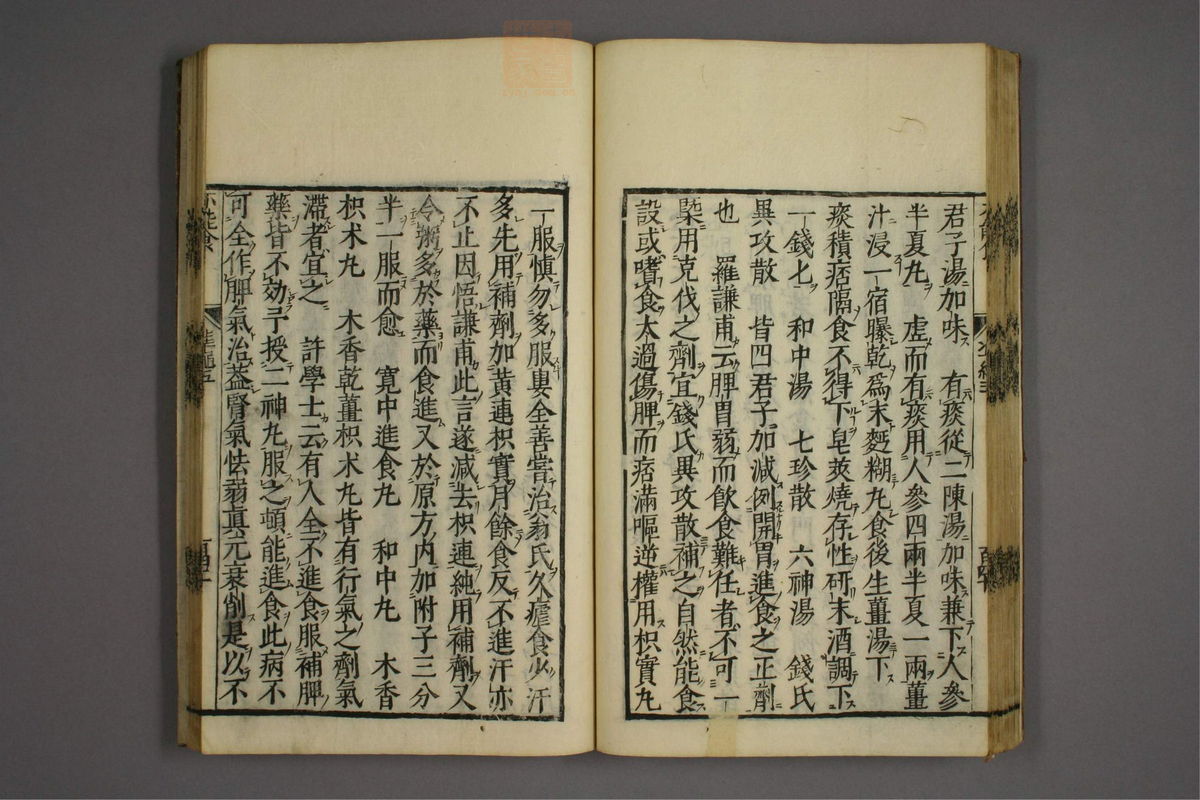 君子湯加味　有痰從二陳湯加味兼下人參
半夏丸　虛而有痰用人參四兩半夏一兩薑
汁浸一宿曝乾爲末麪糊丸食後生薑湯下
痰積痞隔食不得下皂莢燒存性研末酒調下
一錢七　和中湯　七珍散　六神湯　錢氏
異攻散　皆四君子加減例開胃進食之正劑
也　羅謙甫云脾胃弱而飲食難任者不可一
槩用克伐之劑宜錢氏異攻散補之自然能食
設或嗜食太過傷脾而痞滿嘔逆權用枳實丸
一服愼勿多服婁全善嘗治翁氏久瘧食少汗
多先用補劑加黃連枳實月餘食反不進汗亦
不止因悟謙甫此言遂減去枳連純用補劑又
令粥多於藥而食進又於原方内加附子三分
半一服而愈　寬中進食丸　和中丸　木香
枳术丸　木香乾薑枳术丸皆有行氣之劑氣
滯者宜之　許學士云有人全不進食服補脾
藥皆不効予授二神丸服之頓能進食此病不
可全作脾氣治蓋腎氣怯弱眞元衰削是以不
不能食